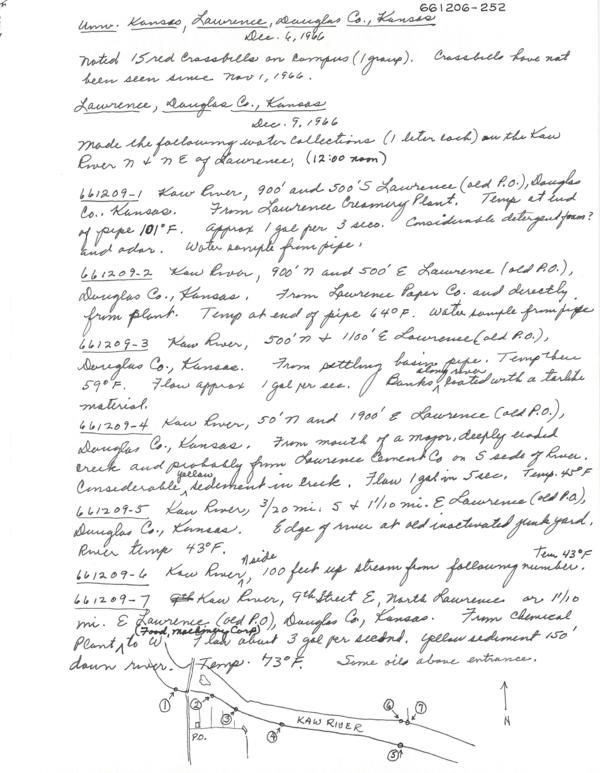 661206-252
Univ. Kansas, Lawrence, Douglas Co., Kansas
Dec. 6, 1966
Noted 15 red Crossbills on campus (1 group). Crossbills have not
been seen since Nov 1, 1966.
Lawrence, Douglas Co., Kansas
Dec. 9, 1966
Made the following water collections (1 liter each) on the Kaw
River N & NE of Lawrence, (12:00 noon)
661209-1 Kaw River, 900' and 500' S Lawrence (old P.O.), Douglas
Co., Kansas. From Lawrence Creamery Plant. Temp at end
of pipe 101°F. Approx 1 gal per 3 secs. Considerable detergent foam?
and odor. Water sample from pipe.
661209-2 Kaw River, 900' N and 500' E Lawrence (old P.O.),
Douglas Co., Kansas. From Lawrence Paper Co. and directly
from plant. Temp at end of pipe 64°F. Water sample from pipe
661209-3 Kaw River, 500' N & 1100' E Lawrence (old P.O.),
Douglas Co., Kansas. From settling basin pipe. Temp there
59°F. Flow approx 1 gal per sec. Banks along river coated with a tarlike
material.
661209-4 Kaw River, 50' N and 1900' E Lawrence (old P.O.),
Douglas Co., Kansas. From mouth of a major, deeply eroded
creek and probably from Lawrence Cement Co on S side of River.
Considerable yellow sediment in creek. Flow 1 gal in 5 sec. Temp. 45°F
661209-5 Kaw River, 3/20 mi. S & 1 1/10 mi. E Lawrence (old P.O.),
Douglas Co., Kansas. Edge of river at old inactivated junk yard.
River temp 43°F.
661209-6 Kaw River, N side, 100 feet up stream from following number. Tem 43°F
661209-7 Kaw River, 9th Street E, North Lawrence or 1 1/10
mi. E Lawrence (old P.O), Douglas Co., Kansas. From Chemical
Plant (Food, machinery Corp) to W Flow about 3 gal per second. yellow sediment 150'
down river. Temp. 73°F. Some oils above entrance.
1 2 3 4 KAW RIVER 6 7 5
P.O.
N